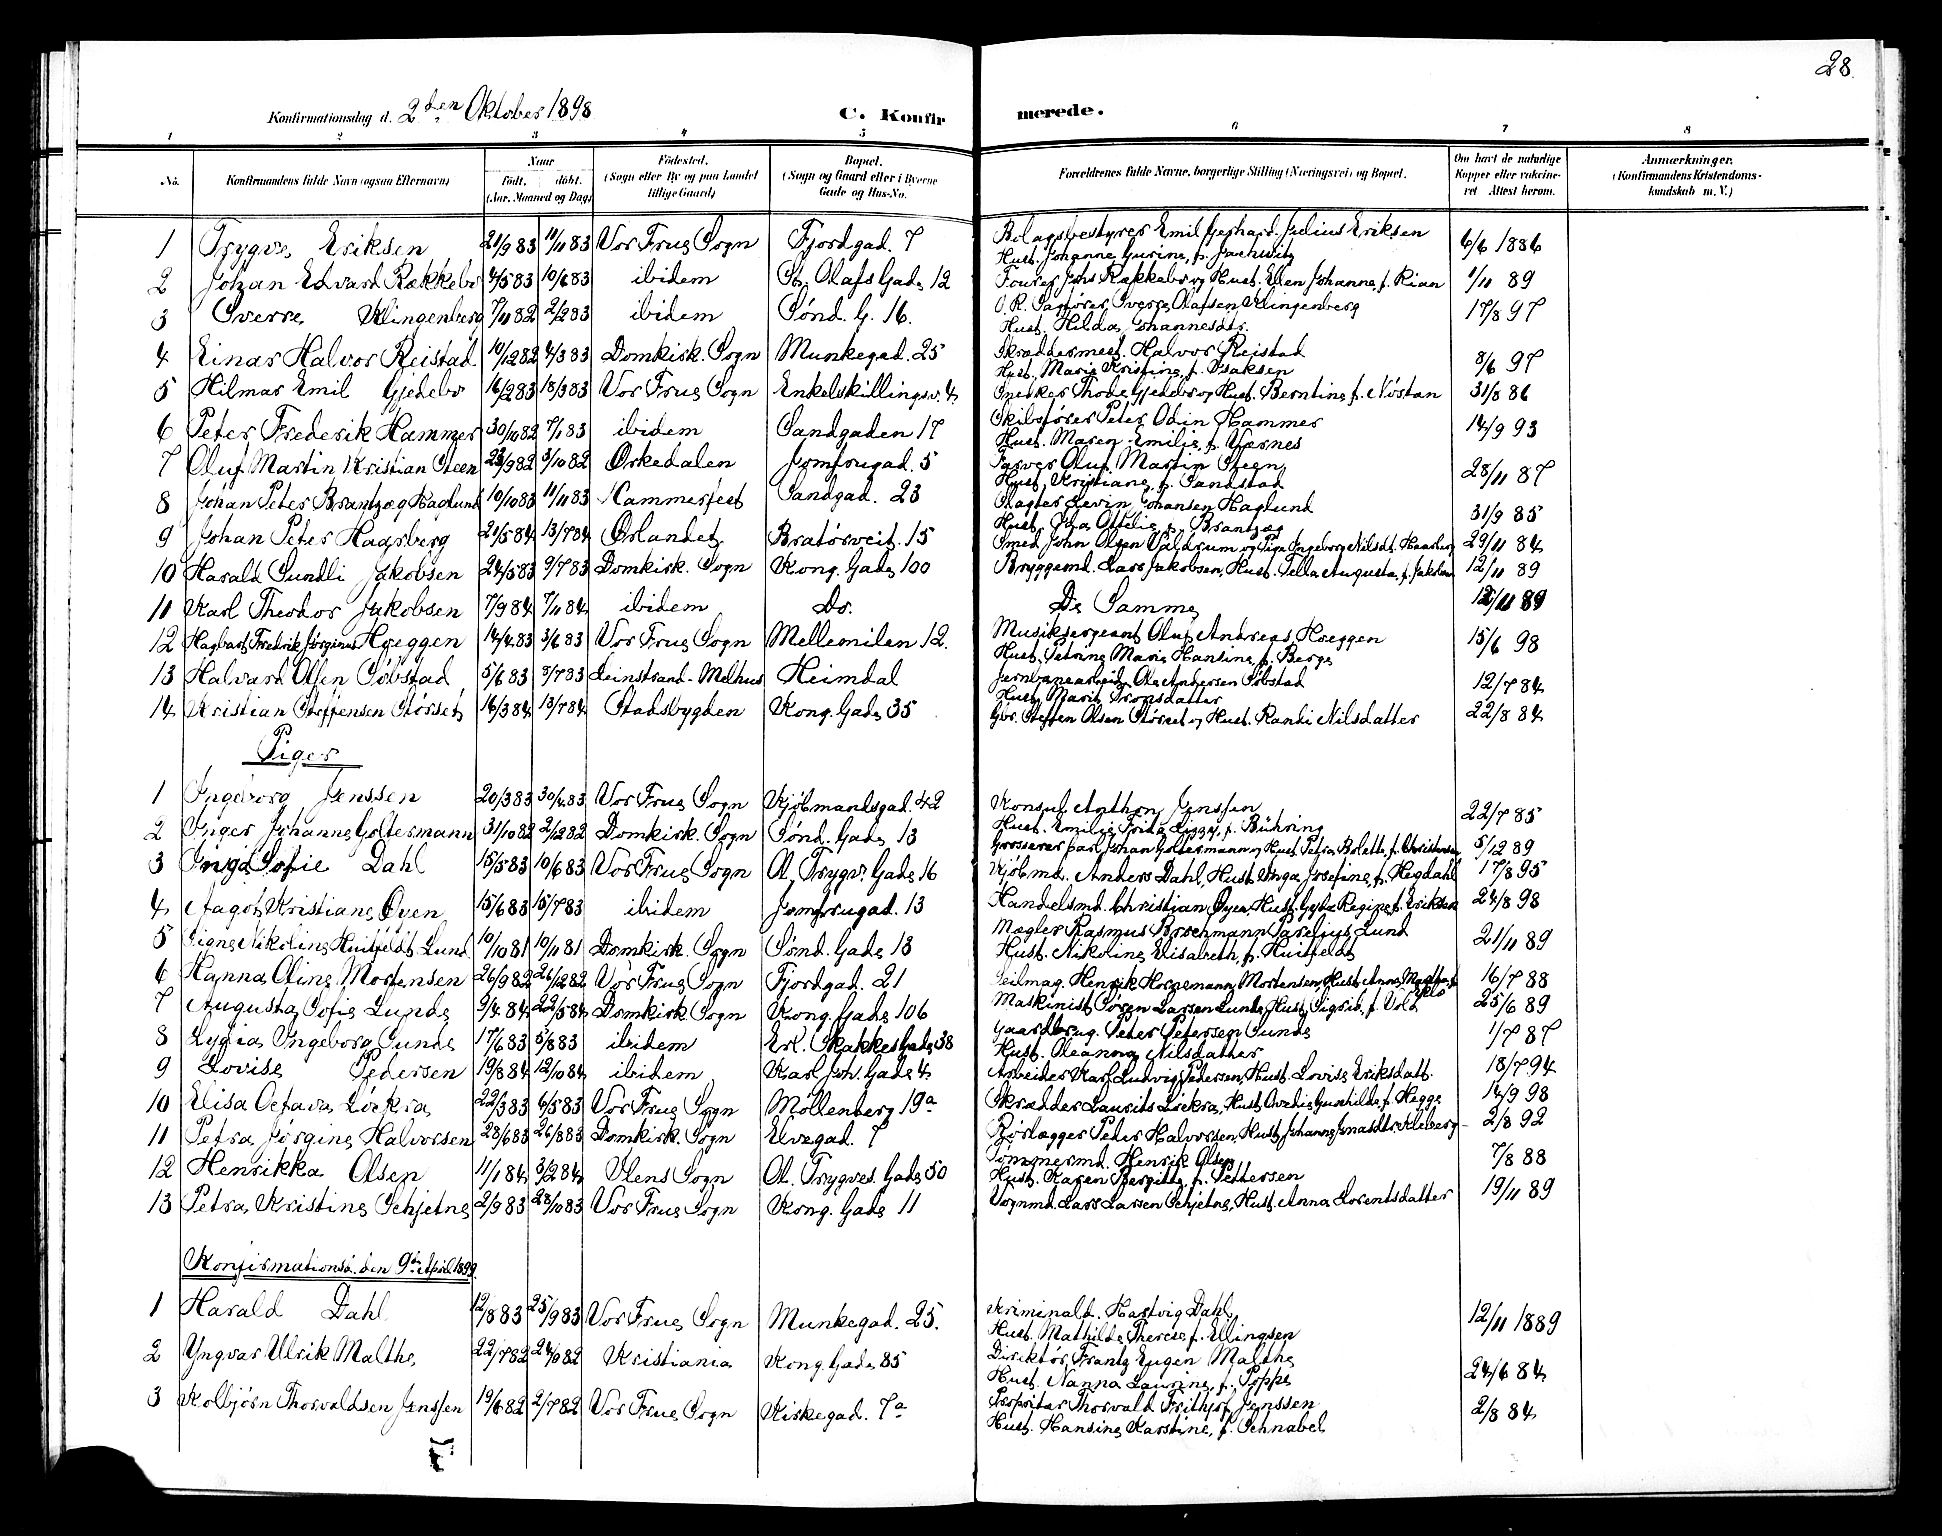 28
Konfirmationsdag d. 2den Oktober 1898 C. Konfirmerede.
1 2 3 4 5 6 7 8
No. Konfirmandens fulde Navn (ogsaa Efternavn) Naar Født. døbt. (Aar, Maaned og Dag) Fødested. (Sogn eller By og paa Landet tillige Gaard) Bopæl. (Sogn og Gaard eller i Byerne Gade og Hus-No. Forældrenes fulde Navne, borgerlige Stilling (Næringsvei) og Bopæl. Om havt de naturlige Kopper eller vakcineret Attest herom. Anmærkninger. (Konfirmandens Kristendomskundskab m. V.)
1 Trygve Eriksen 21/9 83 11/11 83 Vor Frue Sogn Fjordgad. 7 Bolagsbestyrer Emil Gerhard Julius Eriksen Hust. Johanne Gurine, f. 6/6 1886
2 Johan Edvard Rækkebo 4/5 83 10/6 83 ibidem St. Olafs Gade 12 Johs Rækkebo og Hust. Elen Johanne f. Rian 1/11 89
3 Sverre Klingenberg 7/11 82 2/2 83 ibidem Sønd. G. 16. O.R. Sagfører Sverre Olafsen Klingenberg Hust. Hilda Johannesdtr. 17/8 97
4 Einar Halvor Reistad 10/12 82 4/3 83 Domkirk. Sogn Munkegad. 25 Skræddermest. Halvor Reistad Hust. Marie Kristine, f. Isaksen 8/6 97
5 Hilmar Emil Gjedebo 16/2 83 18/3 83 Vor Frue Sogn Enkelskillingsv. 4 Snedker Thode Gjedebo og Hust. Berntine f. Nøstan 31/8 86
6 Peter Frederik Hammer 30/10 82 7/1 83 ibidem Sandgaden 17 Skibsfører Peter Odin Hammer Hust. Maren Emilie, f. Værnes 14/9 93
7 Oluf Martin Kristian Steen 23/9 82 3/10 82 Orkedalen Jomfrugad. 5 Farver Oluf Martin Steen, Hust. Kristiane, f. Sandstad 28/11 87
8 Johan Peter Brantzæg Haglund 10/10 83 11/11 83 Hammerfest Sandgad. 23 Slagter Levin Johansen Haglund Hust. Ida Ottilie f. Brantzæg 31/9 85
9 Johan Peter Hagsberg 21/5 84 13/7 84 Ørlandet Bratørveit. 15 Smed John Olsen Valdrum og Pige Ingeborg Nilsdt. 29/11 84
10 Harald Sundli Jakobsen 24/3 83 9/7 83 Domkirk. Sogn Kong. Gade 100 Bryggemd. Lars Jakobsen, Hust. Augusta, f. Jakobsen 12/11 89
11 Karl Theodor Jakobsen 7/9 84 7/11 84 ibidem Do. De Samme 12/11 89
12 Hagbart Fredrik Jørginus Hoeggen 14/4 83 3/6 83 Vor Frue Sogn Mellemilen 12. Musiksergeant Oluf Andreas Hoeggen Hust. Petrine Marie Hansine, f. Berge 15/6 98
13 Halvard Olsen Søbstad 5/6 83 8/7 83 Leinstrand-Melhus Heimdal Jernbanearbeid. Ole Andersen Søbstad Hust. Marit Tronsdatter 12/7 84
14 Kristian Steffensen Størset 14/3 84 13/7 84 Stadsbygden Kong. Gade 35 Gbr. Steffen Olsen Størset og Hust. Randi Nilsdatter 22/8 84
Piger
1 Ingeborg Jenssen 20/3 83 30/4 83 Vor Frue Sogn Kjøbmandsgad. 42 Konsul Anthon Jenssen Hust. Emilie Frida Lizzy, f. Bühring 22/7 85
2 Inger Johanne Goltermann 31/10 82 2/12 82 Domkirk. Sogn Sønd. Gade 13 Grosserer Carl Johan Goltermann og Hust. Petra Bolette, f. Christensen 5/12 89
3 Inga Sofie Dahl 15/5 83 10/6 83 Vor Frue Sogn Ol. Trygv. Gade 16 Kjøbmd. Anders Dahl, Hust. Inga Josefine, f. Hegdahl 17/8 95
4 Aagot Kristiane Øyen 15/6 83 15/7 83 ibidem Jomfrugad. 13 Handelsmd. Christian Øyen, Hust. Gyda Regine f. Eriksen 24/8 98
5 Signe Nikoline Huitfeldt Lund 10/10 81 10/11 81 Domkirk. Sogn Sønd. Gade 13 Mægler Rasmus Brochmann Parelius Lund Hust. Nikoline Elisabeth, f. Huitfeldt 21/11 89
6 Hanna Oline Mortensen 26/9 82 26/12 82 Vor Frue Sogn Fjordgad. 21 Seilmag. Henrik Hornemann Mortensen, Hust. Anna 16/7 88
7 Augusta Sofie Lunde 9/4 84 22/5 84 Domkirk. Sogn Kong. Gade 106 Maskinist Søren Larsen Lunde, Hust. Sigrid, f. Vold 25/6 89
8 Lydia Ingeborg Sunde 17/6 83 5/8 83 ibidem Erl. Skakkes Gade 38 Gaardbrug. Peter Petersen Sunde Hust. Oleanna Nilsdatter 1/7 87
9 Lovise Pedersen 19/8 84 12/10 84 ibidem Karl Joh. Gade 4 Arbeider Karl Ludvig Pedersen, Hust. Lovise Eriksdatt. 18/7 94
10 Elisa Octava Løckra 22/3 83 6/5 83 Vor Frue Sogn Møllenberg 19a Skrædder Laurits Løckra, Hust. Gunhilda f. Hegge 14/9 98
11 Petra Jørgine Halvorsen 28/6 83 26/8 83 Domkirk. Sogn Elvegad. 7 Rørlægger Peder Halvorsen, Hust. Johanne Jonasdtr. Kleberg 2/8 92
12 Henrikka Olsen 11/1 84 3/2 84 Ilens Sogn Ol. Trygves. Gade 50 Tømmermd. Henrik Olsen Hust. Karen Bergitte, f. Pettersen 7/8 88
13 Petra Kristine Schjetne 2/9 83 28/10 83 Vor Frue Sogn Kong. Gade 11 Vognmd. Lars Larsen Schjetne, Hust. Anna Lorentsdatter 19/11 89
Konfirmationsd. den 9de April 1899
1 Harald Dahl 12/8 83 25/9 83 Vor Frue Sogn Munkegad. 25. Kriminald. Hartvig Dahl, Hust. Mathilde Therese f. Ellingsen 12/11 1889
2 Yngvar Ulrik Malthe 22/7 82 24/10 82 Kristiania Kong. Gade 85 Direktør Frantz Eugen Malthe Hust. Nanna Laurine, f. Poppe 24/6 84
3 Kolbjørn Thorvaldsen Jenssen 19/6 82 2/7 82 Vor Frue Sogn Kirkegad. 7a Proprietær Thorvald Frithjof Jenssen Hust. Hansine Karstine, f. Schnabel 2/8 84